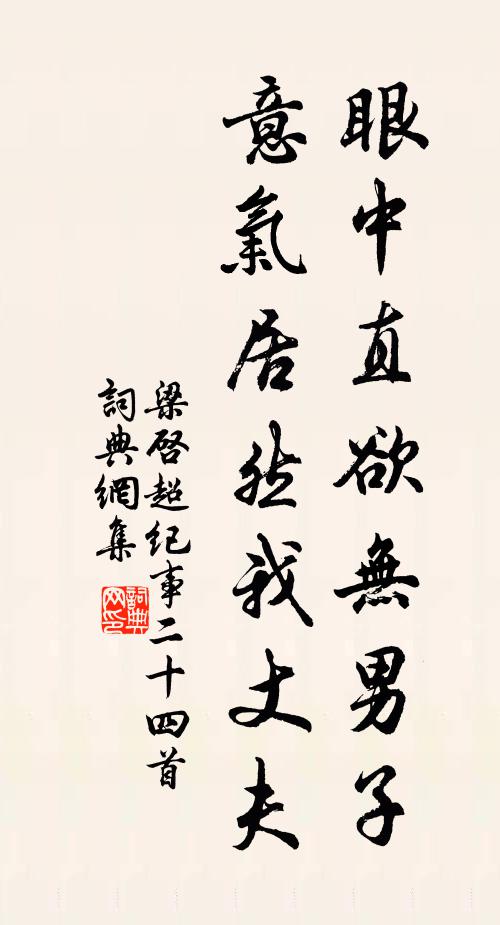 眼中直欲無男子
意氣居然我丈夫
梁啓超紀事二十四首
詞典網集
詞典网印